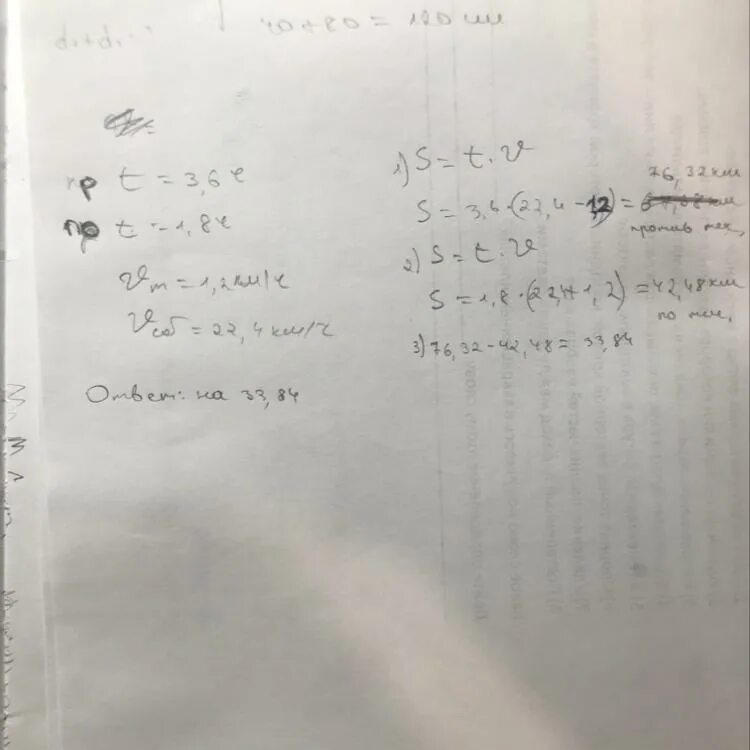 40+80 = 120 см
пр t = 3,6 ч
пр t = 1,8 ч
Vт = 1,2 км/ч
Vсоб = 22,4 км/ч
Ответ: на 33,84
1) S = t · V
S = 3,6 · (22,4 - 1,2) = 76,32 км
против теч,
2) S = t · V
S = 1,8 · (22,4 + 1,2) = 42,48 км
по теч,
3) 76,32 - 42,48 = 33,84